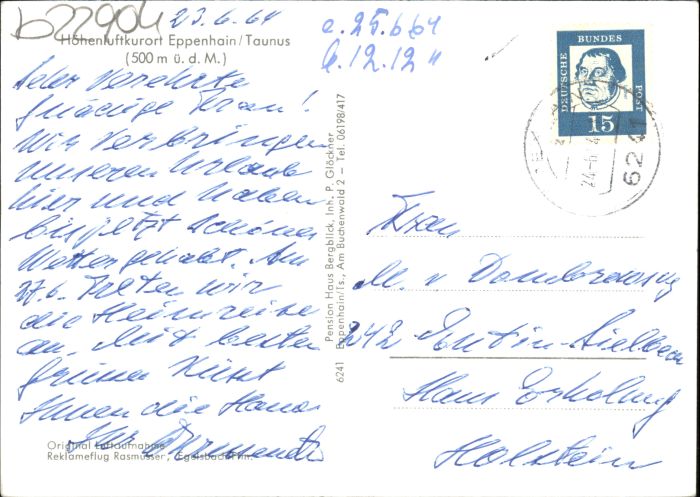 b22904
23.6.64
Höhenluftkurort Eppenhain/Taunus
(500 m ü. d. M.)
Sehr verehrte
gnädige Frau!
Wir verbringen
unseren Urlaub
hier und haben
bis jetzt schönes
Wetter gehabt. Am
27.6. treten wir
die Heimreise
an. Mit besten
Grüssen küsst
Ihnen die Hand
Ihr
Original Luftaufnahme
Reklameflug Rasmusser, Egelsbach/Hn.
Pension Haus Bergblick, Inh. P. Glöckner
6241 Eppenhain/Ts., Am Buchenwald 2 – Tel. 06198/417
e. 25.6.64
b. 12.12 "
DEUTSCHE BUNDES POST
15
24.-6.
6241
Frau
M. v Dombrowsky
242 Eutin-Sielbeck
Haus Erholung
Holstein